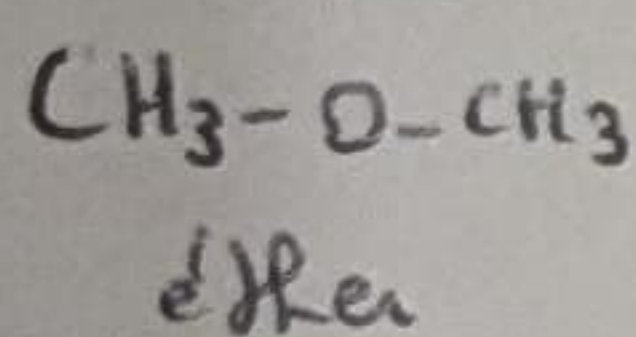 CH3-O-CH3
éther